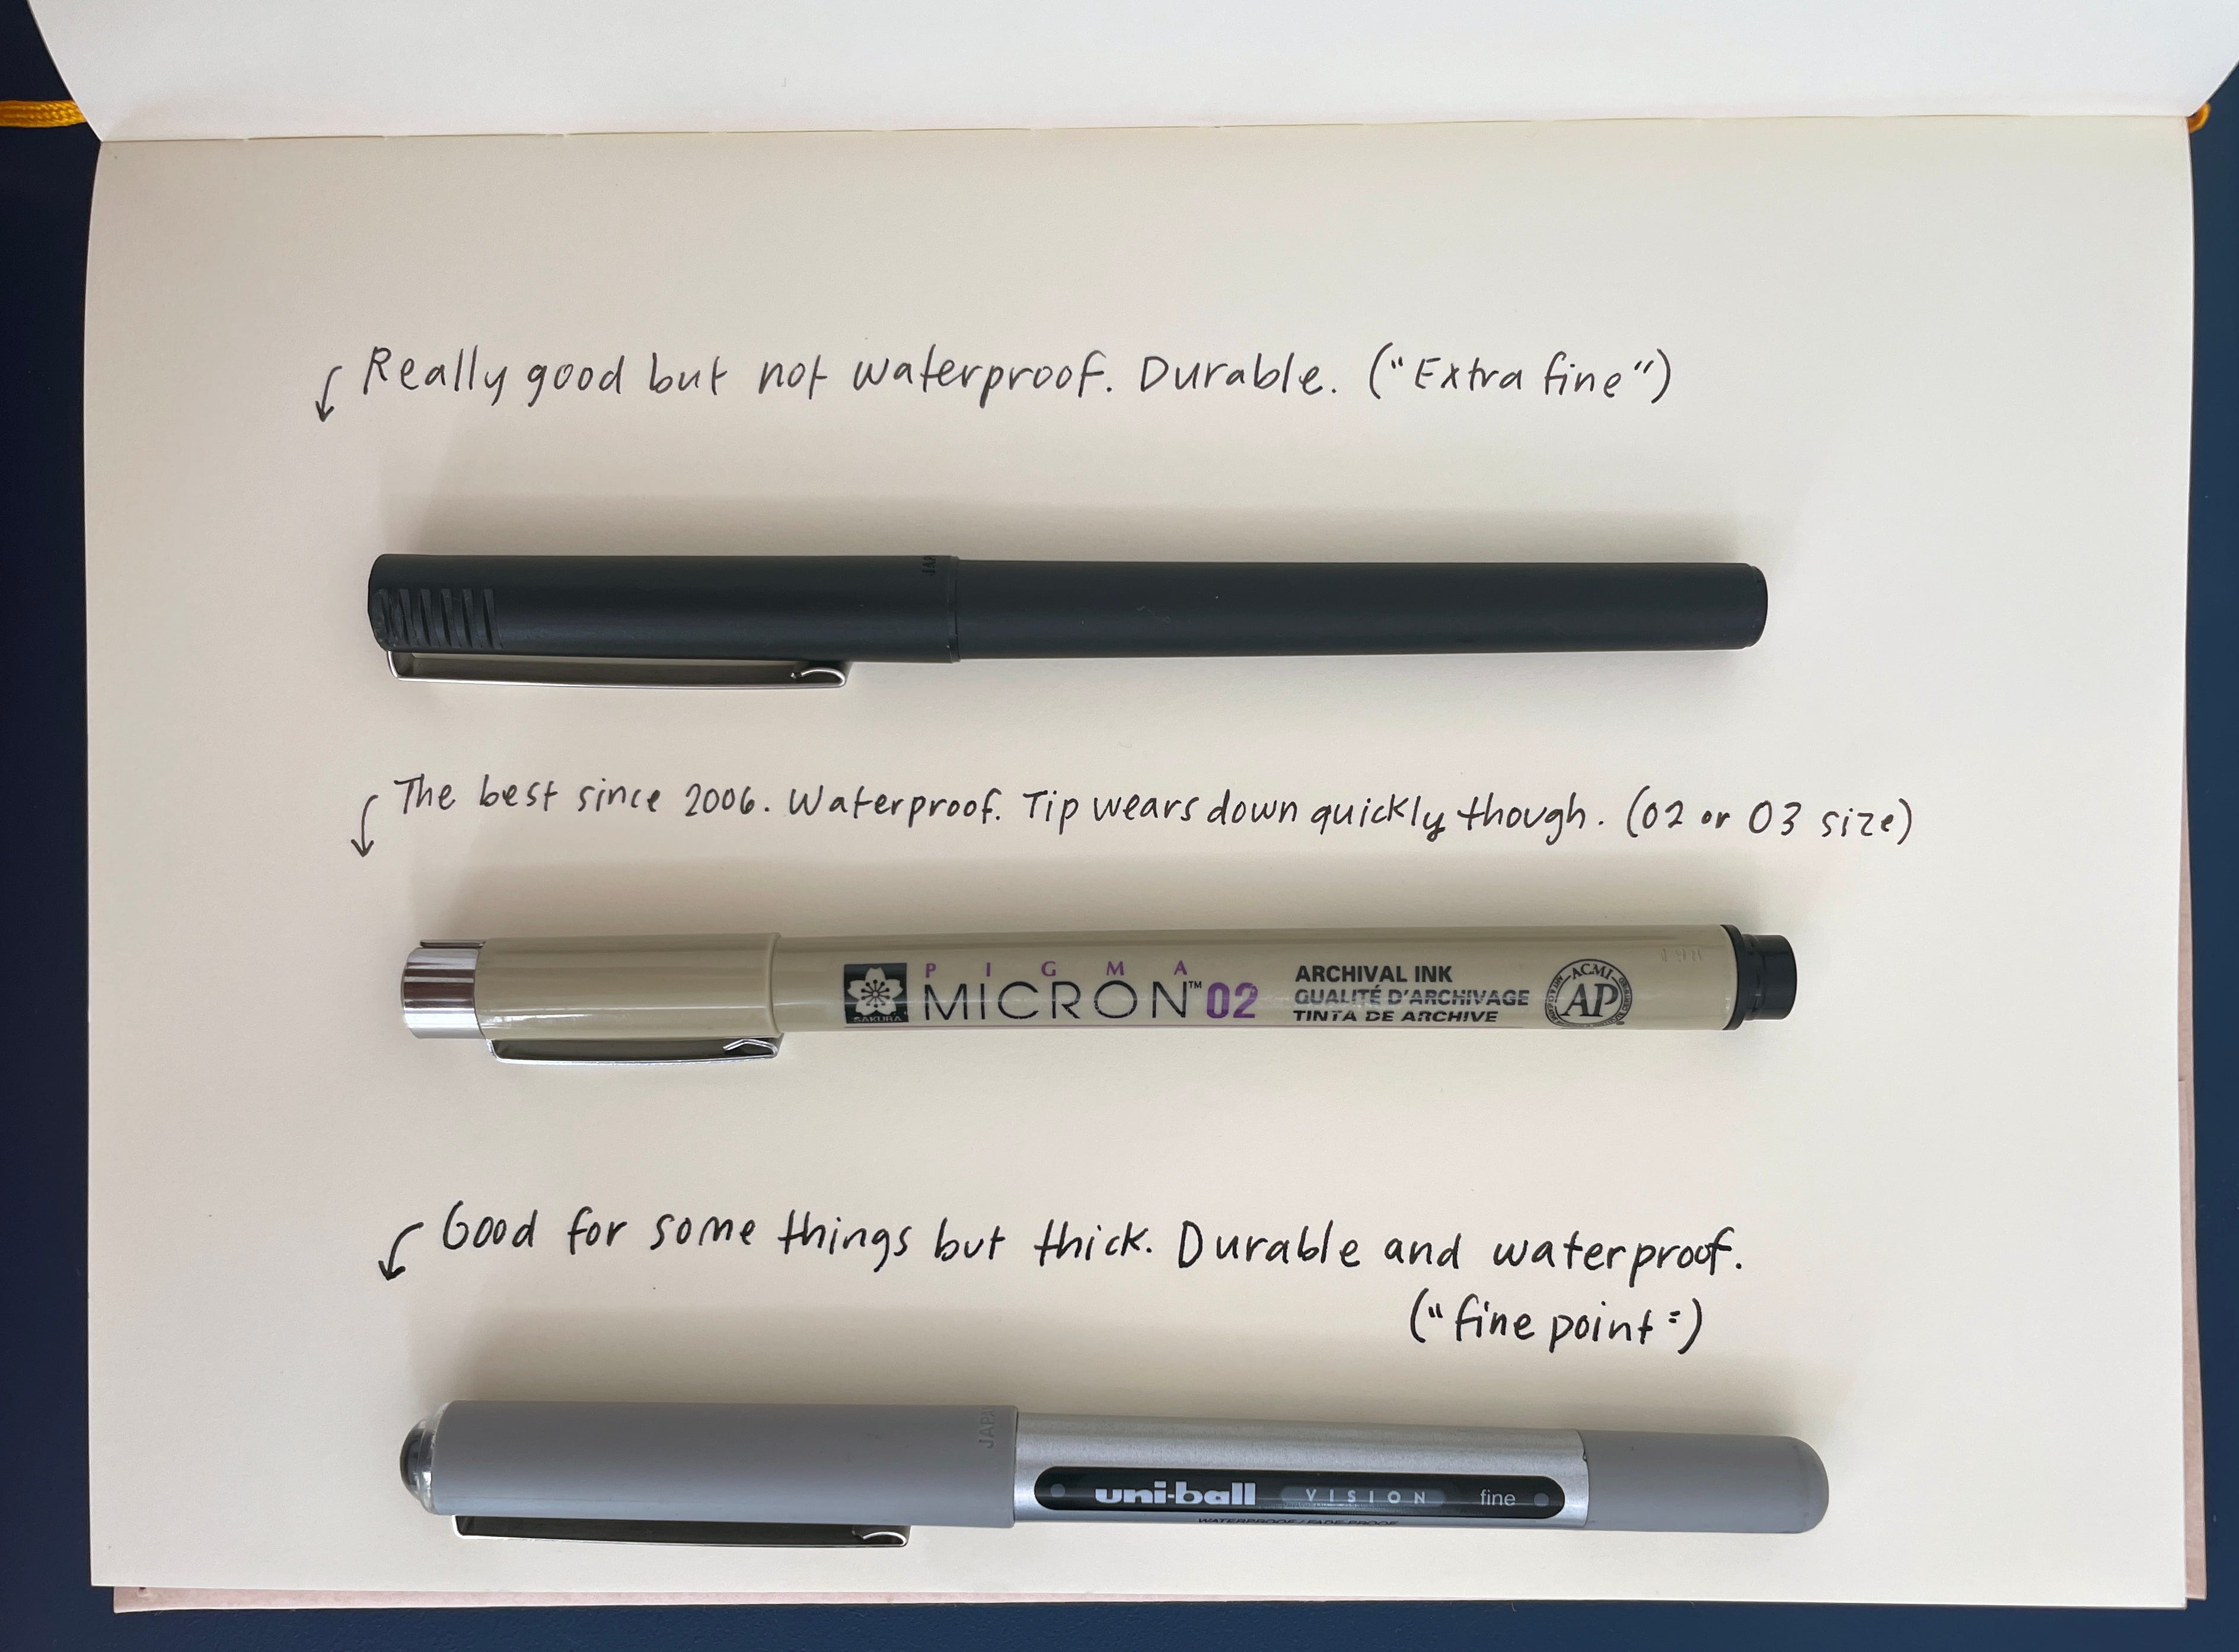 Really good but not waterproof. Durable. ("Extra fine")
The best since 2006. Waterproof. Tip wears down quickly though. (02 or 03 size)
PIGMA
MICRON™ 02
SAKURA
ARCHIVAL INK
QUALITÉ D'ARCHIVAGE
TINTA DE ARCHIVE
ACMI
AP
Good for some things but thick. Durable and waterproof.
("fine point")
JAPAN
uni-ball VISION fine
WATERPROOF / FADE-PROOF